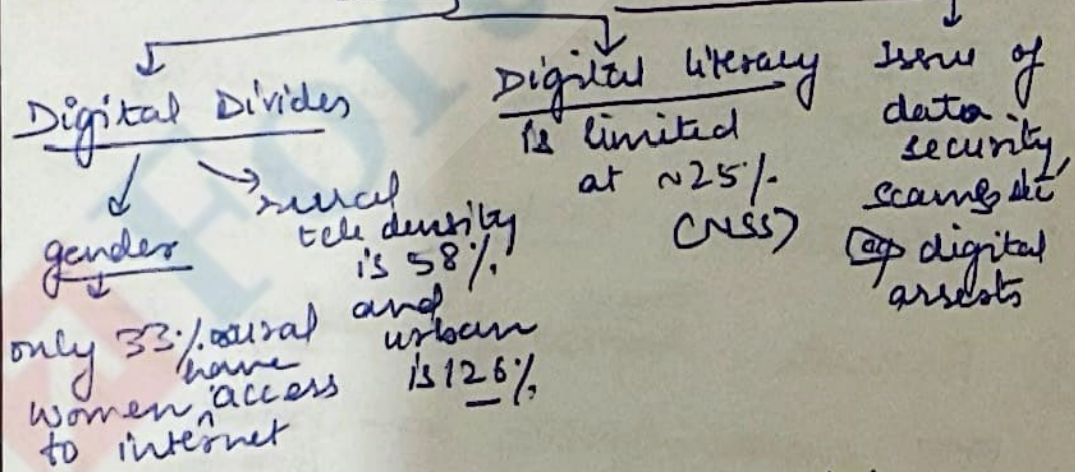 Digital Divides
gender
only 33% rural
women have access
to internet
rural
tele density
is 58%.
and
urban
is 126%.
Digital literacy
is limited
at ~25%.
(NSS)
Issue of
data
security,
scams etc
eg digital
arrests